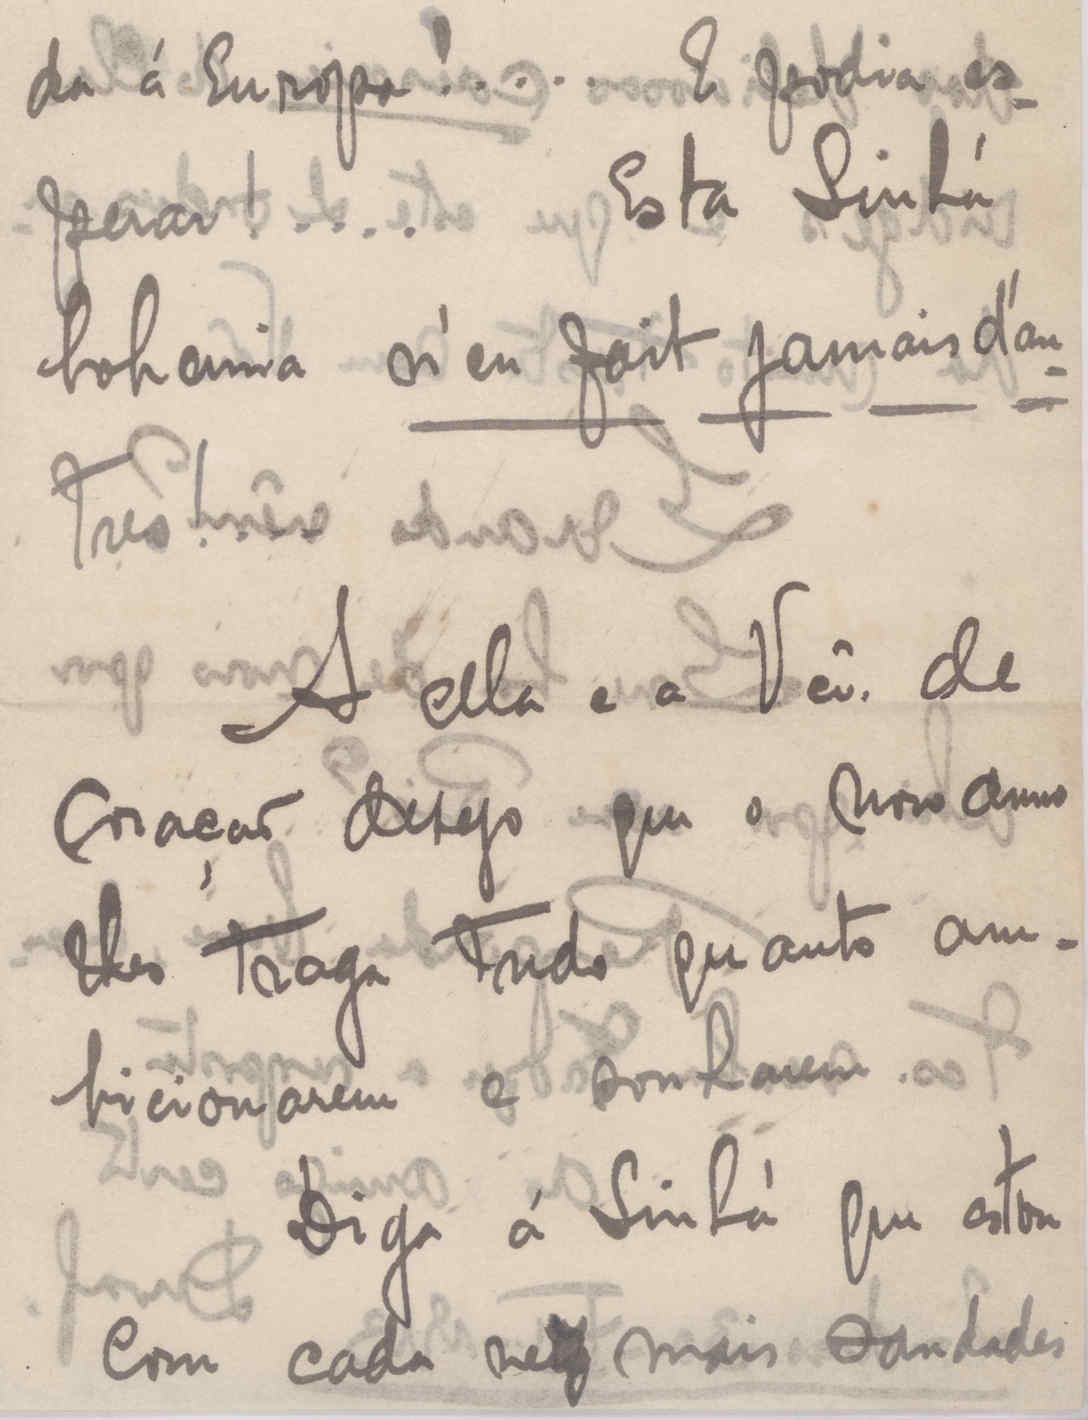 da á Europa!..... E podia es-
perar!..... Esta Sinhá
bohemia n'en fait jamais d'au-
tres!
A ella e a Vcê. de
coração desejo que o novo anno
lhes traga tudo quanto am-
bicionarem e sonharem.
Diga á Sinhá que estou
com cada vez mais saudades